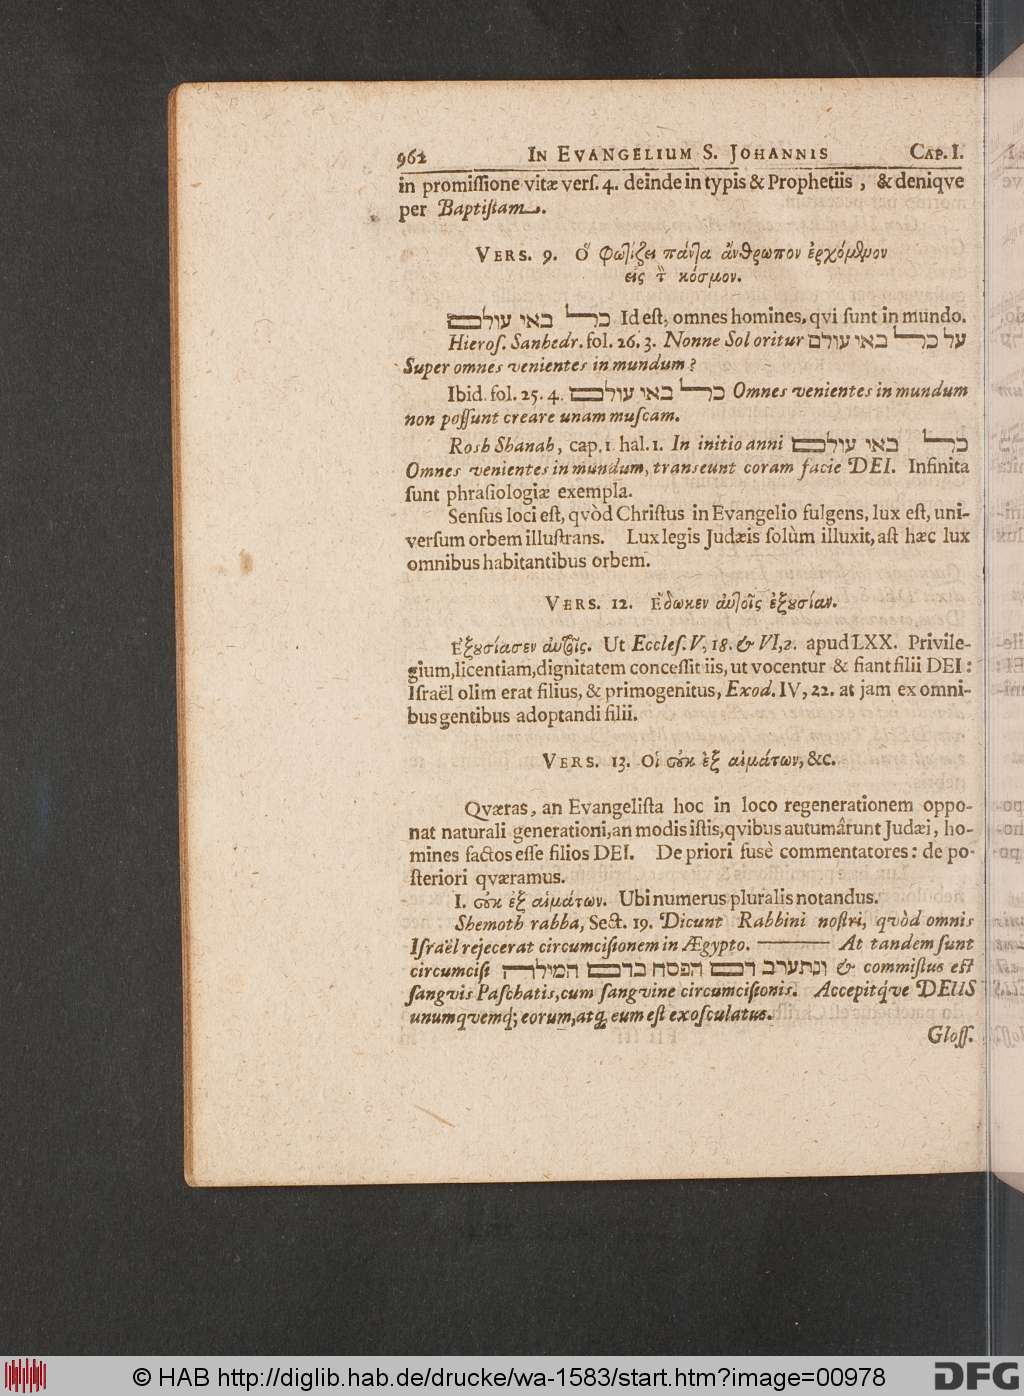 962 IN EVANGELIUM S. JOHANNIS CAP. I.
in promiſſione vitæ verſ. 4. deinde in typis & Prophetiis , & deniqve
per Baptiſtam.
VERS. 9. Ὅ φωτίζει πάντα ἄνθρωπον ἐρχόμενον
εἰς τὸν κόσμον.
כל באי עולם Id eſt, omnes homines, qvi ſunt in mundo.
Hieroſ. Sanhedr. fol. 26. 3. Nonne Sol oritur על כל באי עולם
Super omnes venientes in mundum ?
Ibid. fol. 25. 4. כל באי עולם Omnes venientes in mundum
non poſſunt creare unam muſcam.
Rosh Shanah, cap. 1. hal. 1. In initio anni כל באי עולם
Omnes venientes in mundum, transeunt coram facie DEI. Infinita
ſunt phraſiologiæ exempla.
Senſus loci eſt, qvòd Chriſtus in Evangelio fulgens, lux eſt, uni-
verſum orbem illuſtrans. Lux legis Judæis ſolùm illuxit, aſt hæc lux
omnibus habitantibus orbem.
VERS. 12. Ἔδωκεν αὐτοῖς ἐξουσίαν.
Ἐξουσίασεν αὐτοῖς. Ut Eccleſ. V, 18. & VI, 2. apud LXX. Privile-
gium, licentiam, dignitatem conceſſit iis, ut vocentur & fiant filii DEI :
Iſraël olim erat filius, & primogenitus, Exod. IV, 22. at jam ex omni-
bus gentibus adoptandi filii.
VERS. 13. Οἱ οὐκ ἐξ αἱμάτων, &c.
Qværas, an Evangeliſta hoc in loco regenerationem oppo-
nat naturali generationi, an modis iſtis, qvibus autumârunt Judæi, ho-
mines factos eſſe filios DEI. De priori fusè commentatores : de po-
ſteriori qværamus.
I. οὐκ ἐξ αἱμάτων. Ubi numerus pluralis notandus.
Shemoth rabba, Sect. 19. Dicunt Rabbini noſtri, qvòd omnis
Iſraël rejecerat circumciſionem in Ægypto. ——— At tandem ſunt
circumciſi ונתערב דם הפסח בדם המילה & commiſtus eſt
ſangvis Paſchatis, cum ſangvine circumciſionis. Accepitq́ve DEUS
unumqvemq; eorum, atq; eum eſt exoſculatus.
Gloſſ.
© HAB http://diglib.hab.de/drucke/wa-1583/start.htm?image=00978
DFG